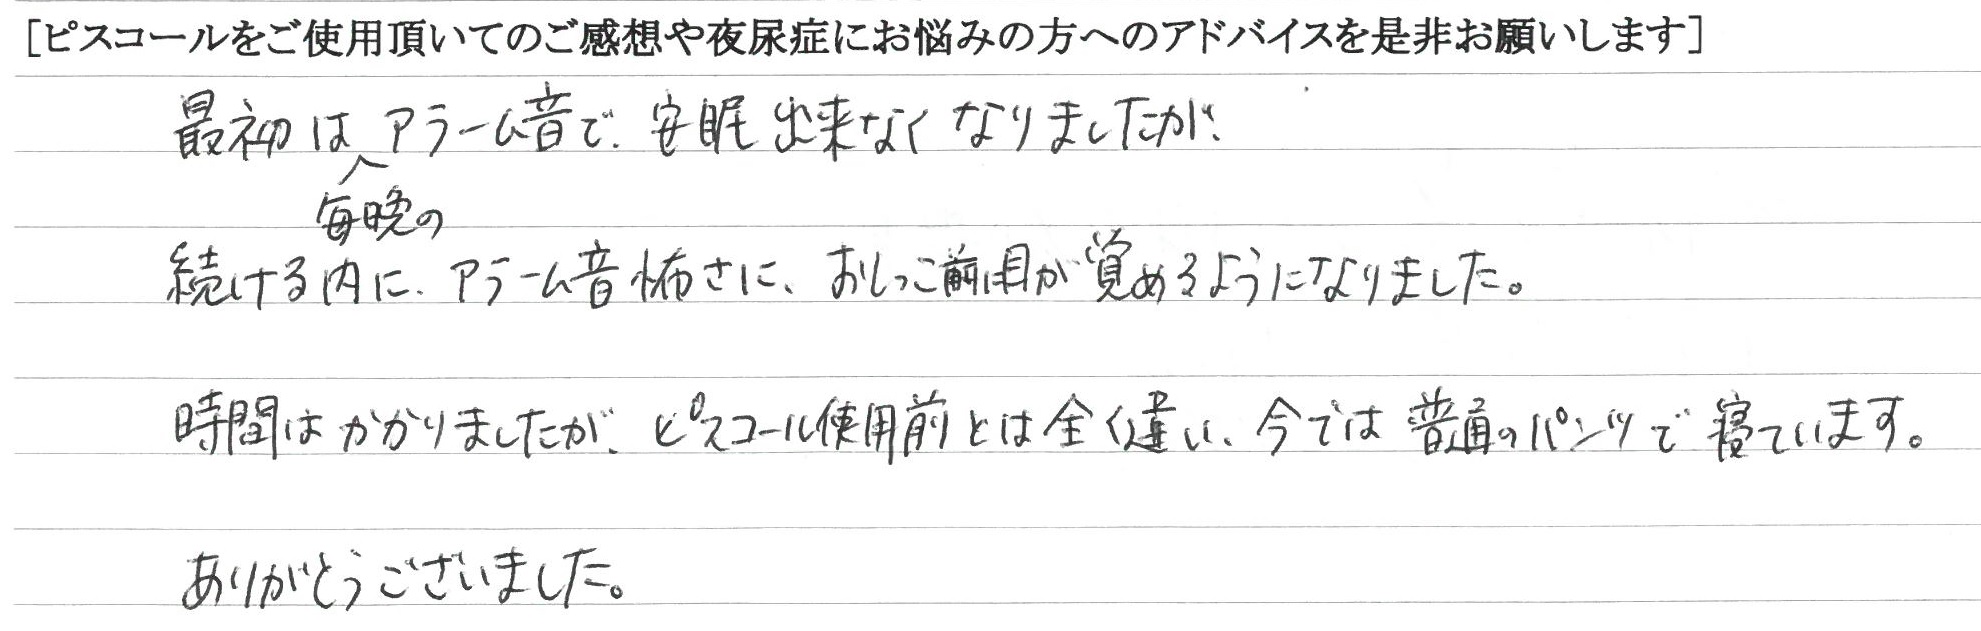 [ピスコールをご使用頂いてのご感想や夜尿症にお悩みの方へのアドバイスを是非お願いします]
最初は毎晩のアラーム音で、安眠出来なくなりましたが、
続ける内に、アラーム音怖さに、おしっこ前に目が覚めるようになりました。
時間はかかりましたが、ピスコール使用前とは全く違い、今では普通のパンツで寝ています。
ありがとうございました。